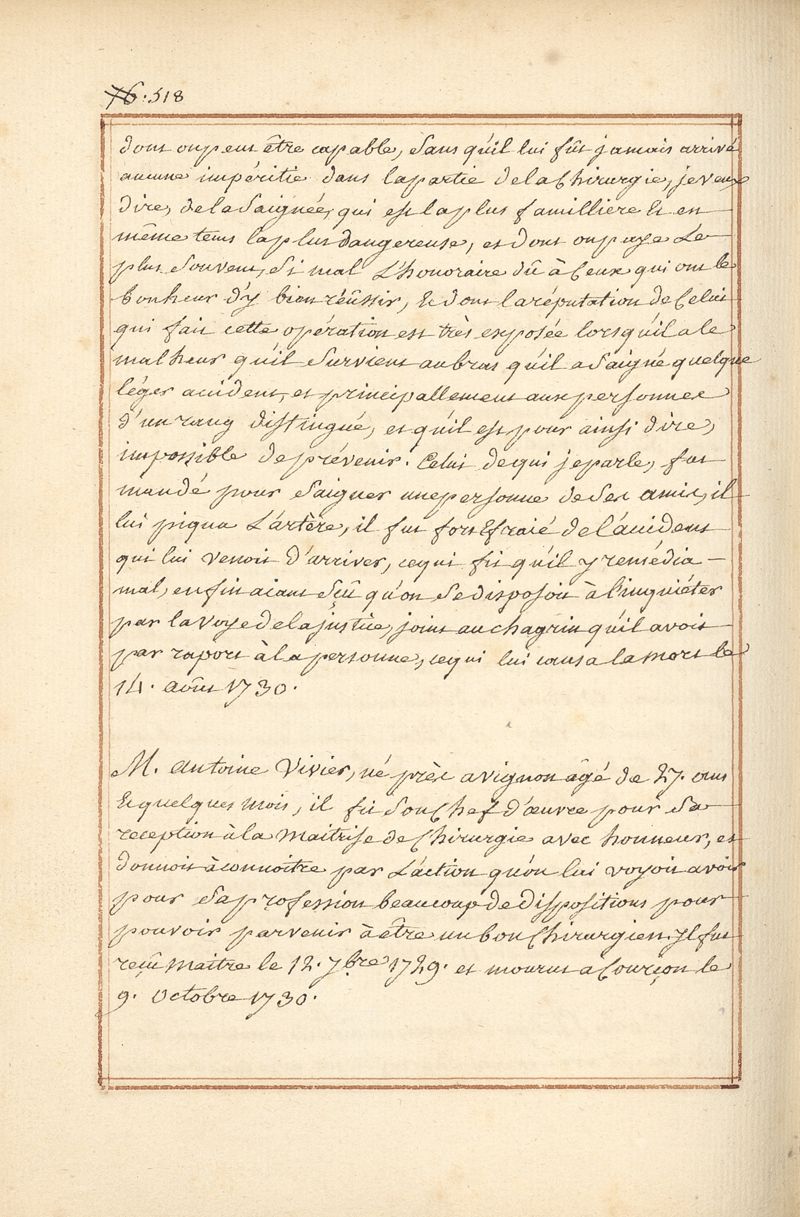 76. 518
dont on peut être capable, sans qu'il lui fût jamais arrivé
aucune impéritie dans la partie de la Chirurgie, je veux
dire, de la Saignée, qui est la plus familliere Et en
même tems la plus dangereuse, et dont on paye Le
plus souvent, Si mal L'honoraire dû à Ceux qui ont le
bonheur d'y bien réüssir, Et dont la réputation de Celui
qui fait cette opération est très exposée lorsqu'il a le
malheur qu'il survient au bras qu'il a Saigné quelque
léger accident, et principallement aux personnes
d'un rang distingué, et qu'il est pour ainsi dire,
impossible de prévenir. Celui de qui je parle, fut
mandé pour Saigner une personne de Ses amis, il
lui piqua L'artère, il fut fort Efraié de l'accident
qui lui venoit d'arriver, ce qui fit qu'il y remédia
mal, enfin aiant Sçû qu'on Se disposoit à l'inquiéter
par la voye de la justice, joint au chagrin qu'il avoit
par raport à la personne, ce qui lui causa la mort le
14. août 1730.
M. Antoine Vivier, né près avignon âgé de 27. ans
Et quelques mois, il fit Son Chef d'œuvre pour Sa
reception à la Maitrise de Chirurgie avec honneur, et
donnoit à connoitre par L'action qu'on lui voyoit avoir
pour Sa profession beaucoup de dispositions pour
pouvoir parvenir à être un bon Chirurgien. Il fut
reçû Maitre le 12. 7bre 1729. et mourut a Courçon le
9. Octobre 1730.